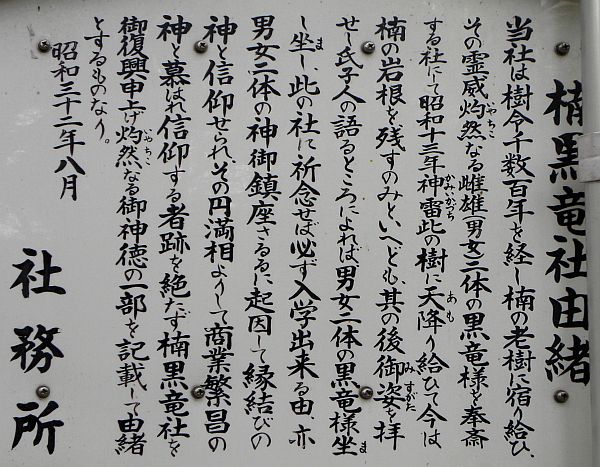 楠黒竜社由緒
当社は樹令千数百年を経し楠の老樹に宿り給ひ、
その霊威灼然なる雌雄(男女)二体の黒竜様を奉斎
する社にて昭和十三年神雷此の樹に天降り給ひて今は
楠の岩根を残すのみといへども、其の後御姿を拝
せし氏子人の語るところによれば、男女二体の黒竜様坐
し坐し、此の社に祈念せば必ず入学出来る由、亦
男女二体の神御鎮座さるるに起因して縁結びの
神と信仰せられ、その円満相よりして商業繁昌の
神と慕はれ信仰する者跡を絶たず楠黒竜社を
御復興申上げ灼然なる御神徳の一部を記載して由緒
とするものなり。
昭和三十二年八月
社務所